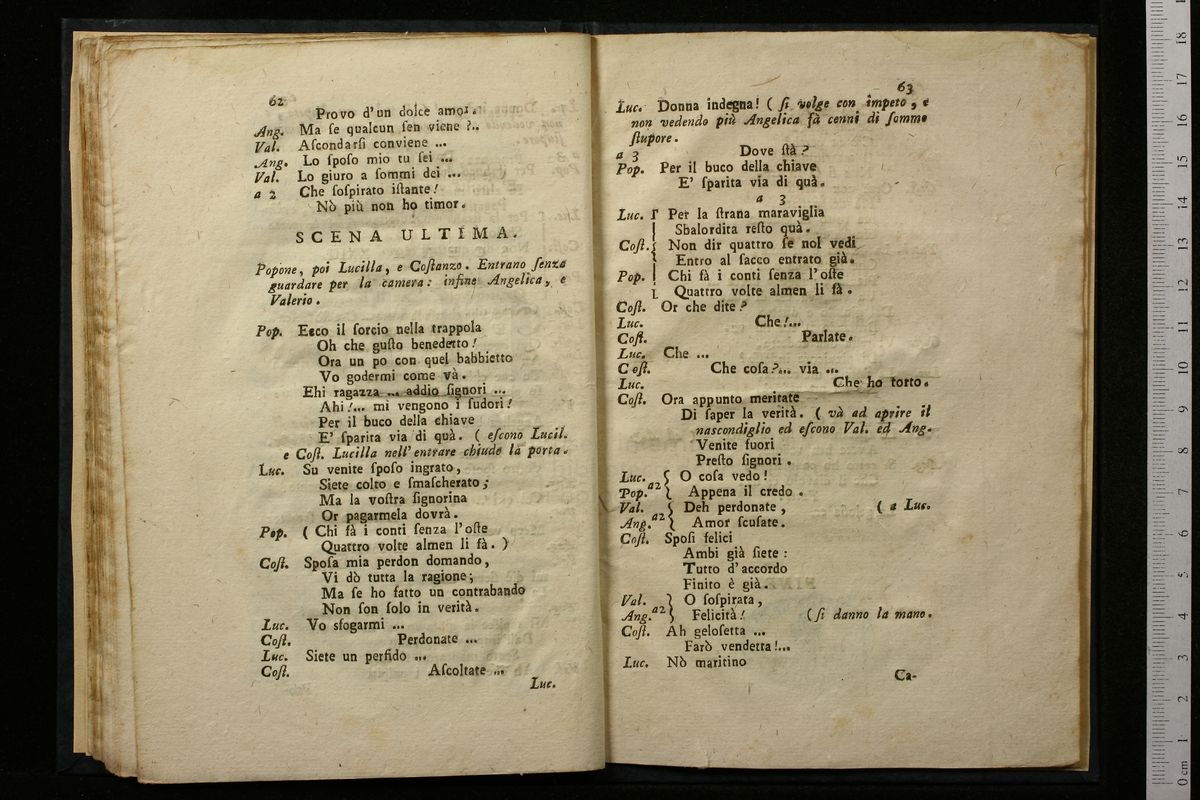 62
Provo d'un dolce amor.
Ang. Ma ſe qualcun ſen viene ?..
Val. Aſcondarſi conviene ...
Ang. Lo ſpoſo mio tu ſei ...
Val. Lo giuro a ſommi dei ...
a 2 Che ſoſpirato iſtante!
Nò più non ho timor.
SCENA ULTIMA.
Popone, poi Lucilla, e Coſtanzo. Entrano ſenza
guardare per la camera: infine Angelica, e
Valerio.
Pop. Ecco il ſorcio nella trappola
Oh che guſto benedetto!
Ora un po con quel babbietto
Vo godermi come và.
Ehi ragazza ... addio ſignori ...
Ahi!... mi vengono i ſudori!
Per il buco della chiave
E' ſparita via di quà. ( eſcono Lucil.
e Coſt. Lucilla nell'entrare chiude la porta.
Luc. Su venite ſpoſo ingrato,
Siete colto e ſmaſcherato;
Ma la voſtra ſignorina
Or pagarmela dovrà.
Pop. ( Chi fà i conti ſenza l'oſte
Quattro volte almen li fà. )
Coſt. Spoſa mia perdon domando,
Vi dò tutta la ragione;
Ma ſe ho fatto un contrabando
Non ſon ſolo in verità.
Luc. Vo sfogarmi ...
Coſt. Perdonate ...
Luc. Siete un perfido ...
Coſt. Aſcoltate ...
Luc.
63
Luc. Donna indegna! ( ſi volge con impeto, e
non vedendo più Angelica fà cenni di ſommo
ſtupore.
a 3 Dove ſtà?
Pop. Per il buco della chiave
E' ſparita via di quà.
a 3
Luc. Per la ſtrana maraviglia
Sbalordita reſto quà.
Coſt. Non dir quattro ſe nol vedi
Entro al ſacco entrato già.
Pop. Chi fà i conti ſenza l'oſte
Quattro volte almen li fà.
Coſt. Or che dite?
Luc. Che!...
Coſt. Parlate.
Luc. Che ...
Coſt. Che coſa?... via ...
Luc. Che ho torto.
Coſt. Ora appunto meritate
Di ſaper la verità. ( và ad aprire il
naſcondiglio ed eſcono Val. ed Ang.
Venite fuori
Preſto ſignori.
Luc. a2 { O coſa vedo!
Pop. Appena il credo.
Val. a2 { Deh perdonate, ( a Luc.
Ang. Amor ſcuſate.
Coſt. Spoſi felici
Ambi già ſiete:
Tutto d'accordo
Finito è già.
Val. a2 } O ſoſpirata,
Ang. Felicità! ( ſi danno la mano.
Coſt. Ah geloſetta ...
Farò vendetta!...
Luc. Nò maritino
Ca-
0 cm 1 2 3 4 5 6 7 8 9 10 11 12 13 14 15 16 17 18